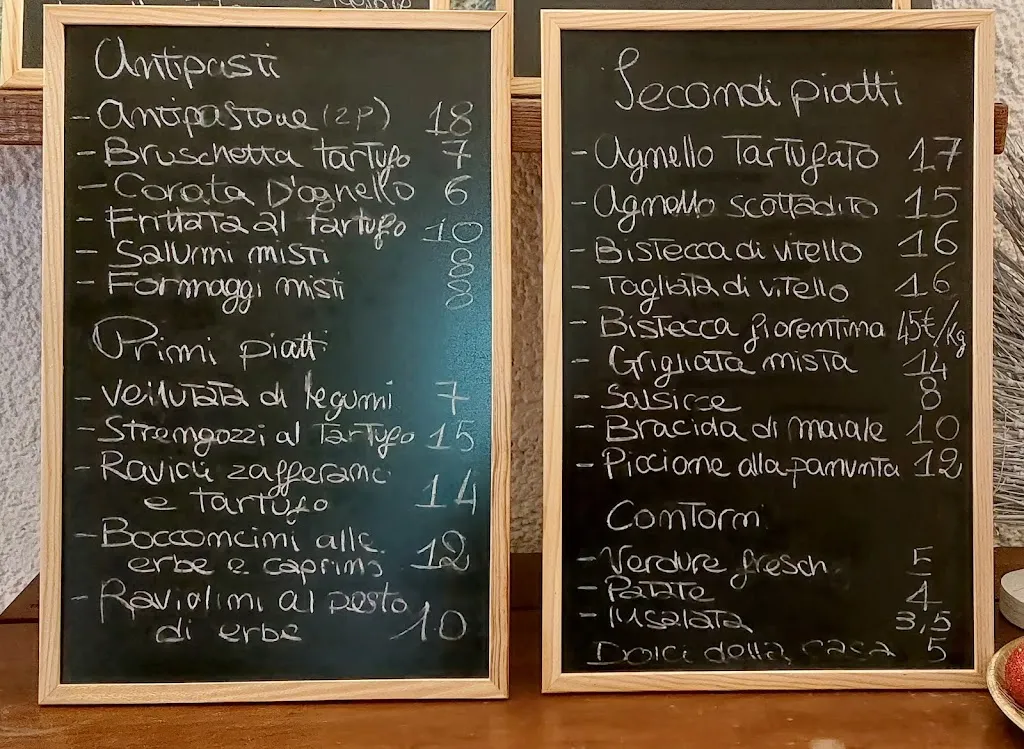 Antipasti
- Antipastone (2P) 18
- Bruschetta tartufo 7
- Corata D'agnello 6
- Frittata al tartufo 10
- Salumi misti 8
- Formaggi misti 8
Primi piatti
- Vellutata di legumi 7
- Stremgozzi al Tartufo 15
- Ravioli zafferano
e tartufo 14
- Bocconcini alle
erbe e caprino 12
- Raviolini al pesto
di erbe 10
Secondi piatti
- Agnello Tartufato 17
- Agnello scottadito 15
- Bistecca di vitello 16
- Tagliata di vitello 16
- Bistecca fiorentina 45€/Kg
- Grigliata mista 14
- Salsicce 8
- Braciola di maiale 10
- Piccione alla panunta 12
Contorni
- Verdure fresche 5
- Patate 4
- Insalata 3,5
Dolci della casa 5